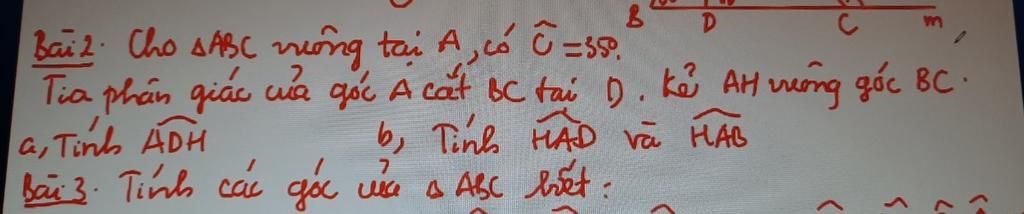 B D C m
Bài 2. Cho ΔABC vuông tại A, có Ĉ = 35°.
Tia phân giác của góc A cắt BC tại D. Kẻ AH vuông góc BC.
a, Tính \widehat{ADH} b, Tính \widehat{HAD} và \widehat{HAB}
Bài 3. Tính các góc của Δ ABC biết: